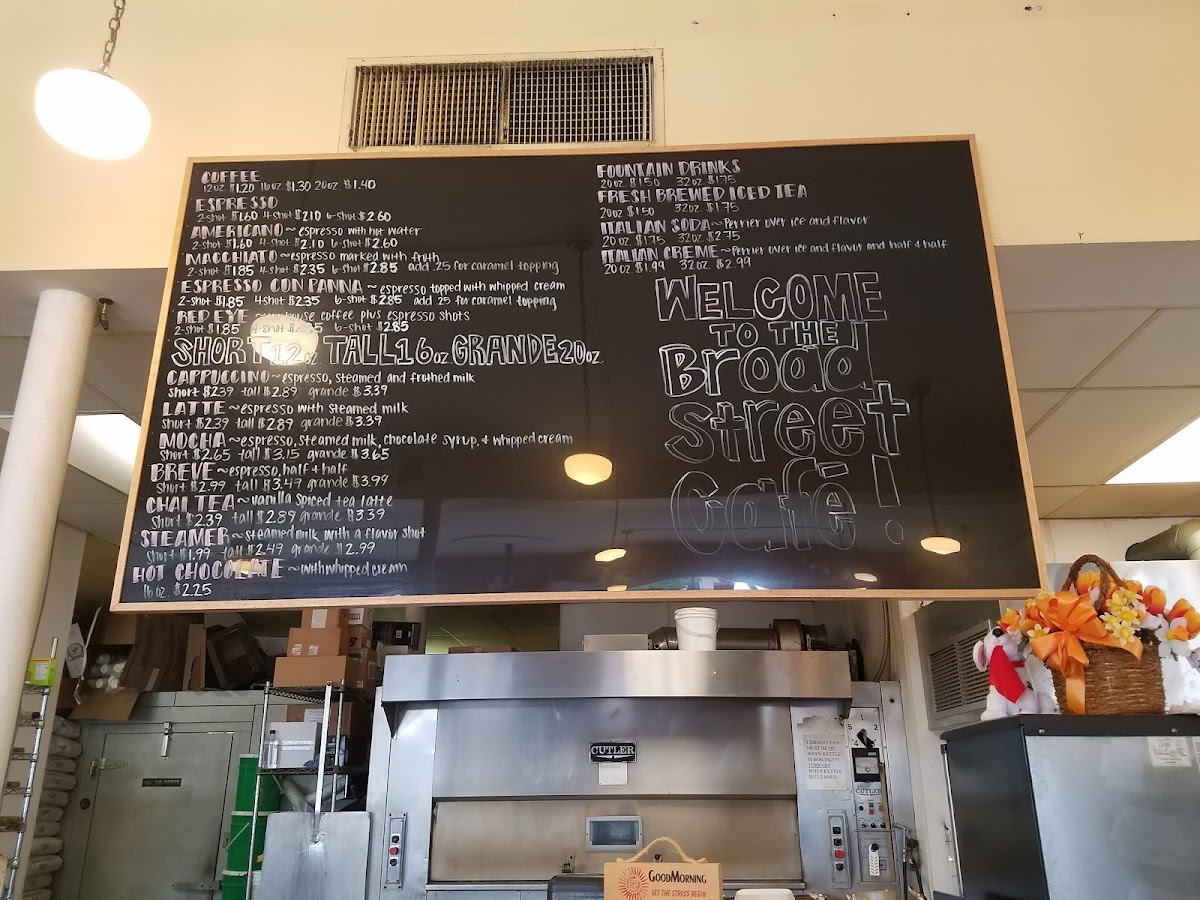 COFFEE
12oz $1.20 16oz $1.30 20oz $1.40
ESPRESSO
2-shot $1.60 4-shot $2.10 6-shot $2.60
AMERICANO~espresso with hot water
2-shot $1.60 4-shot $2.10 6-shot $2.60
MACCHIATO~espresso marked with froth
2-shot $1.85 4-shot $2.35 6-shot $2.85 add .25 for caramel topping
ESPRESSO CON PANNA~espresso topped with whipped cream
2-shot $1.85 4-shot $2.35 6-shot $2.85 add .25 for caramel topping
RED EYE~ house coffee plus espresso shots
2-shot $1.85 4-shot 6-shot $2.85
SHORT 12oz TALL 16oz GRANDE 20oz
CAPPUCCINO~espresso, steamed and frothed milk
short $2.39 tall $2.89 grande $3.39
LATTE~espresso with steamed milk
short $2.39 tall $2.89 grande $3.39
MOCHA~espresso, steamed milk, chocolate syrup, + whipped cream
short $2.65 tall $3.15 grande $3.65
BREVE~espresso, half + half
short $2.99 tall $3.49 grande $3.99
CHAI TEA~vanilla spiced tea latte
short $2.39 tall $2.89 grande $3.39
STEAMER~steamed milk with a flavor shot
short $1.99 tall $2.49 grande $2.99
HOT CHOCOLATE~with whipped cream
16 oz. $2.25
FOUNTAIN DRINKS
20 oz. $1.50 32oz. $1.75
FRESH BREWED ICED TEA
20oz $1.50 32oz. $1.75
ITALIAN SODA~Perrier over ice and flavor
20 oz. $1.75 32oz $2.75
ITALIAN CREME~Perrier over ice and flavor and half + half
20 oz. $1.99 32 oz. $2.99
WELCOME
TO THE
Broad
street
Café!
CUTLER
EXHAUST FAN
MUST BE ON
WHEN KETTLE
IS BOILING!!!!
TURN OFF
WHEN KETTLE
IS CLEANED
CUTLER
GOODMORNING
LET THE STRESS BEGIN